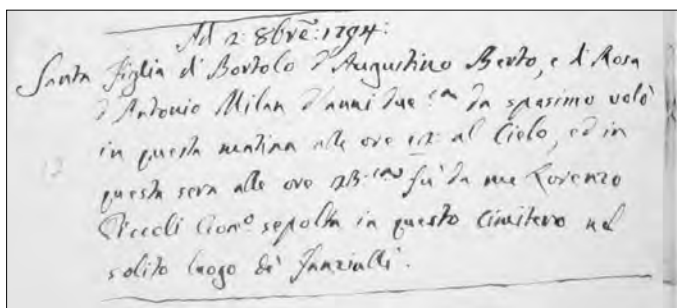 Ad 2: 8bre: 1794:
Santa Figlia di Bortolo d'Augustino Berto, e di Rosa
d'Antonio Milan d'anni due da spasimo volò
in questa matina alle ore 12: al Cielo, ed in
questa sera alle ore 23: fù da me Lorenzo
Piccoli sepolta in questo Cimitero nel
solito luogo di Fanziulli.